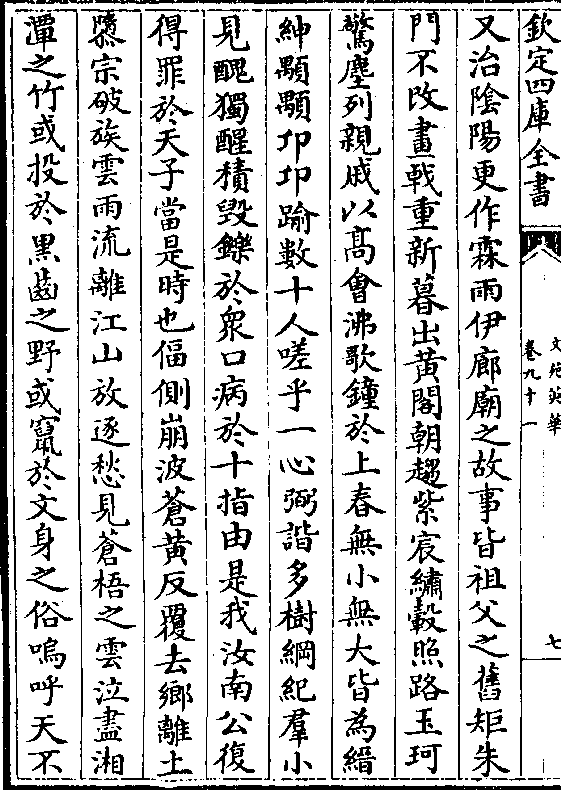 欽定四庫全書
文苑英華
卷九十一
七
又治陰陽更作霖雨伊廊廟之故事皆祖父之舊矩朱
門不改畫戟重新暮出黄閣朝趨紫宸繡轂照路玉珂
驚塵列親戚以髙會沸歌鐘於上春無小無大皆為縉
紳顒顒卬卬踰數十人嗟乎一心弼諧多樹綱紀羣小
見醜獨醒積毀鑠於衆口病於十指由是我汝南公復
得罪於天子當是時也偪側崩波蒼黄反覆去鄉離土
隳宗破族雲雨流離江山放逐愁見蒼梧之雲泣盡湘
潭之竹或投於黒齒之野或竄於文身之俗嗚呼天不